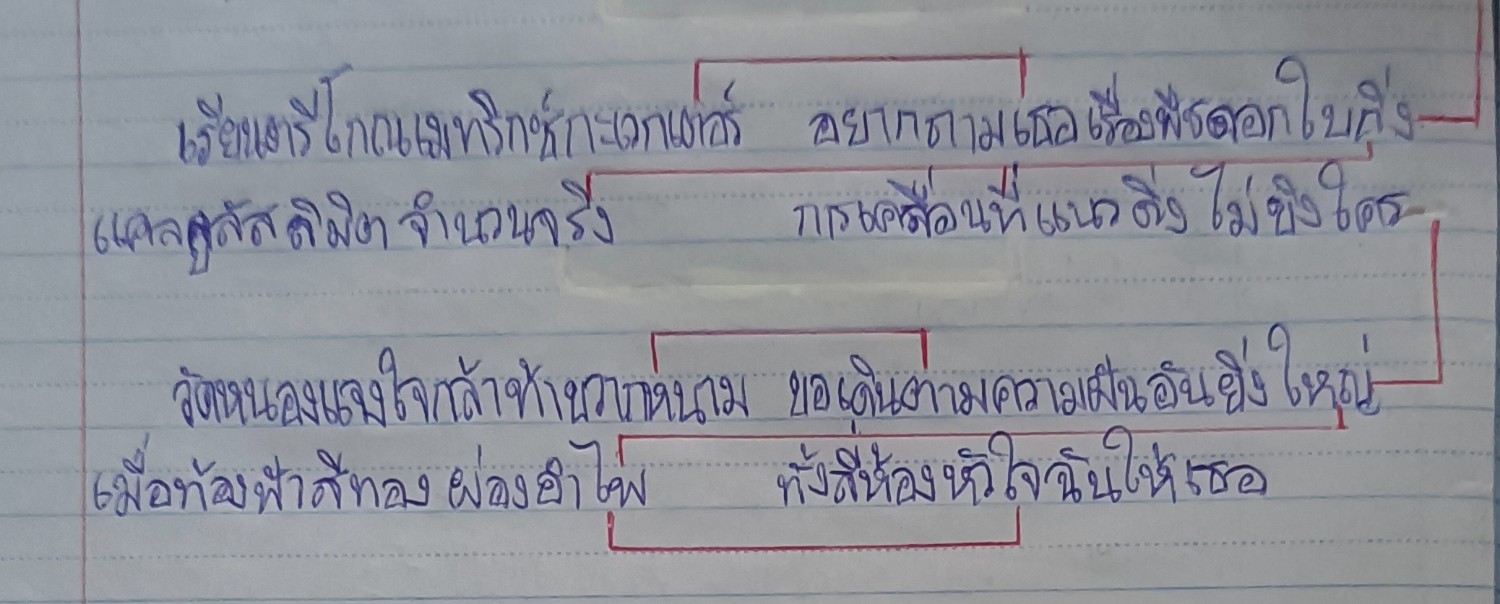 เรียนตรีโกณเมทริกซ์กะเวกเตอร์ อยากถามเธอเรื่องพืชดอกใบกิ่ง
แคลคูลัสลิมิตจำนวนจริง การเคลื่อนที่แนวดิ่งไม่ยิงใคร
วัดหนองแวงใจกล้าท้าขวากหนาม ขอเดินตามความฝันอันยิ่งใหญ่
เมื่อท้องฟ้าสีทองผ่องอำไพ ทั้งสี่ห้องหัวใจฉันให้เธอ